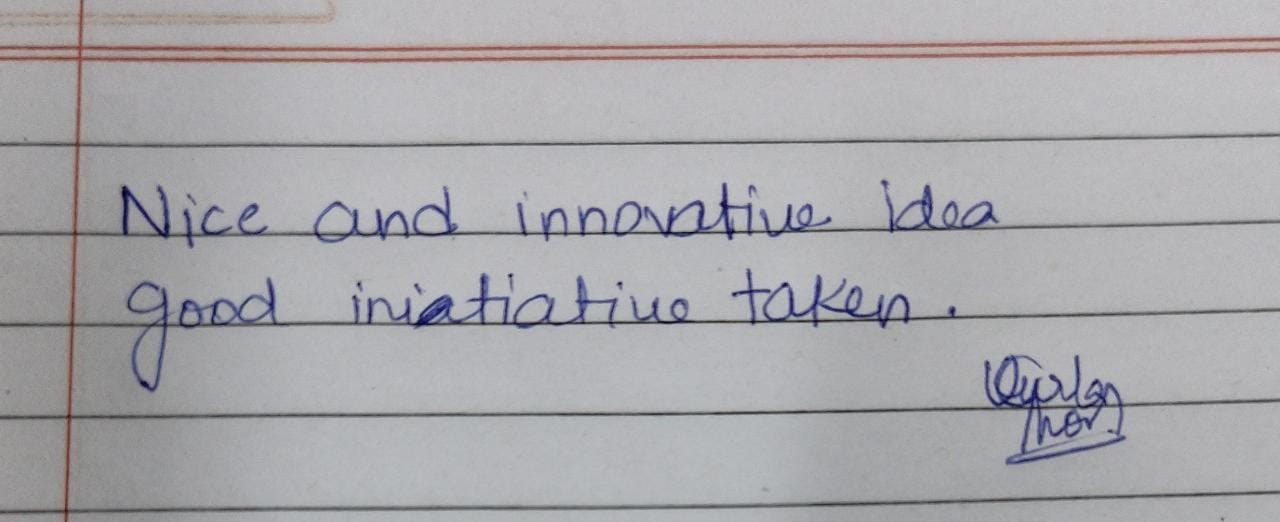 Nice and innovative idea
good iniatiative taken.